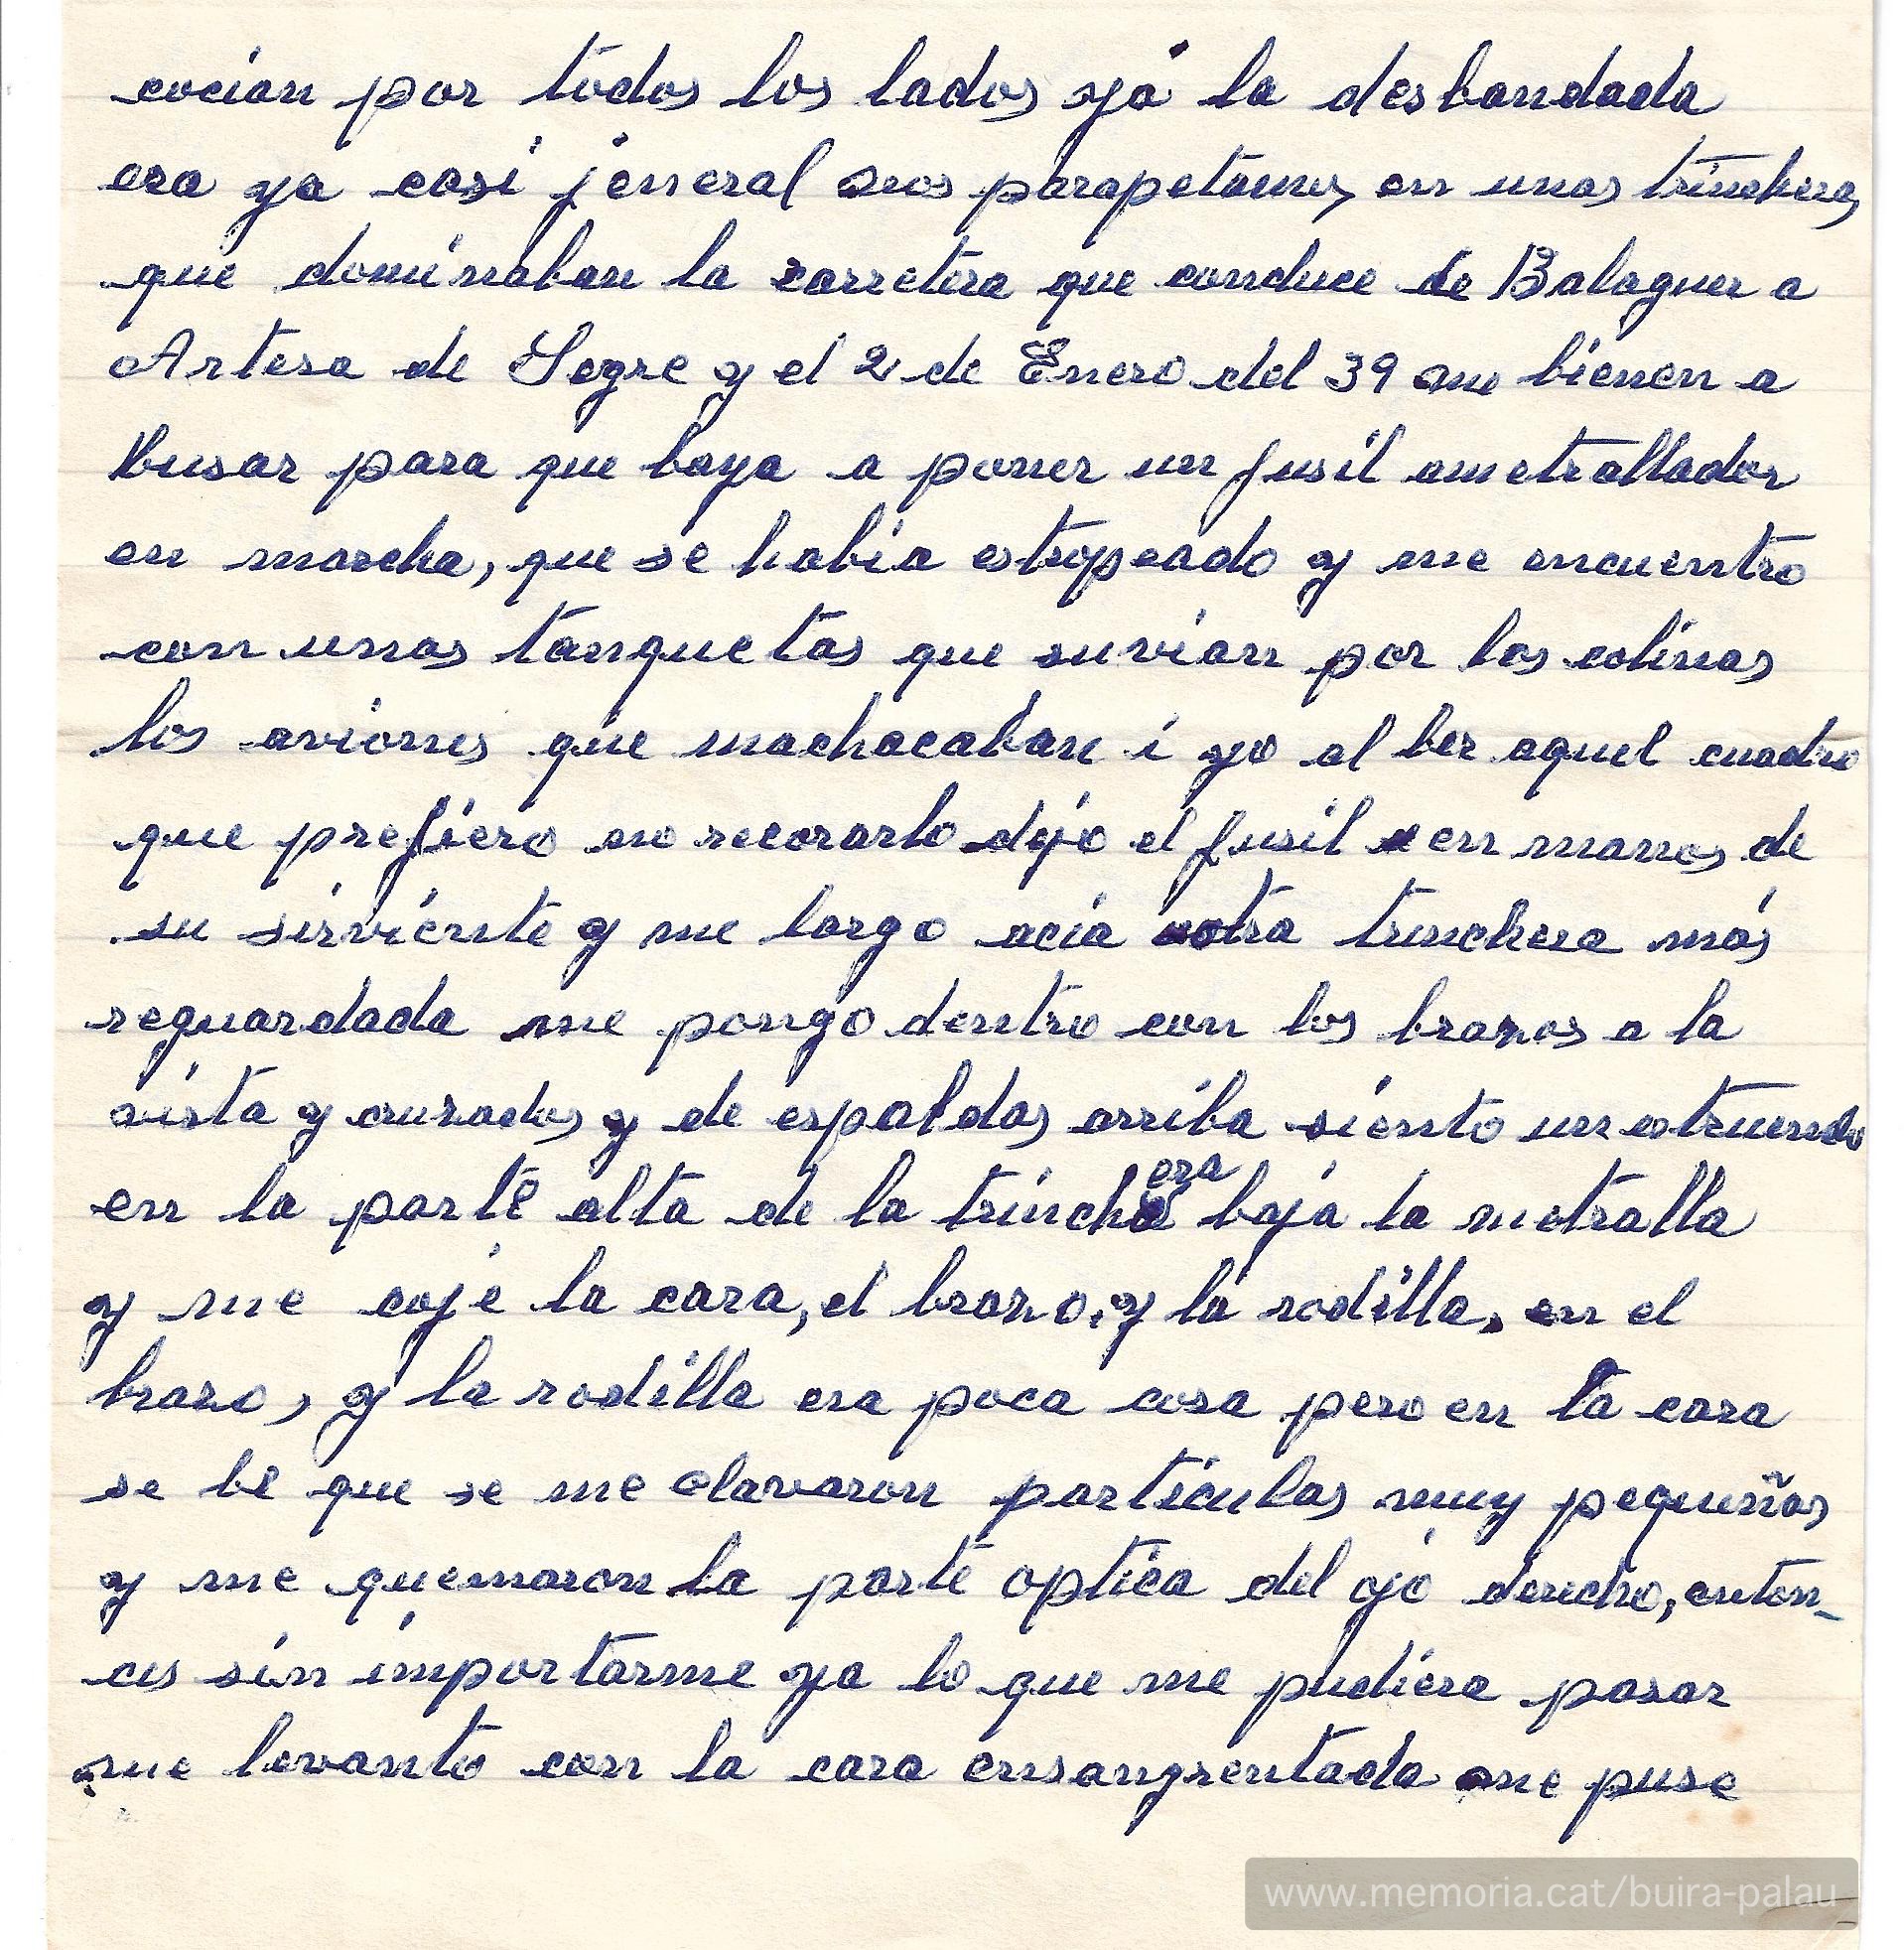 cocian por todos los lados ya la desbandada
era ya casi jeneral nos parapetamos en unas trincheras
que dominaban la carretera que conduce de Balaguer a
Artesa de Segre y el 2 de Enero del 39 me bienen a
busar para que baya a poner un fusil ametrallador
en marcha, que se habia estropeado y me encuentro
con unas tanquetas que suvian por las colinas
los aviones que machacaban i yo al ber aquel cuadro
que prefiero no recorarlo dejo el fusil en manos de
su sirviente y me largo acia otra trinchera más
reguardada me pongo dentro con los brazos a la
vista y cruzados y de espaldas arriba siento un estruendo
en la parte alta de la trinchera baja la metralla
y me coje la cara, el brazo, y la rodilla, en el
brazo, y la rodilla era poca cosa pero en la cara
se be que se me clavaron particulas muy pequeñas
y me quemaron la parte optica del ojo derecho, enton-
ces sin importarme ya lo que me pudiera pasar
me levanto con la cara ensangrentada me puse
www.memoria.cat/buira-palau